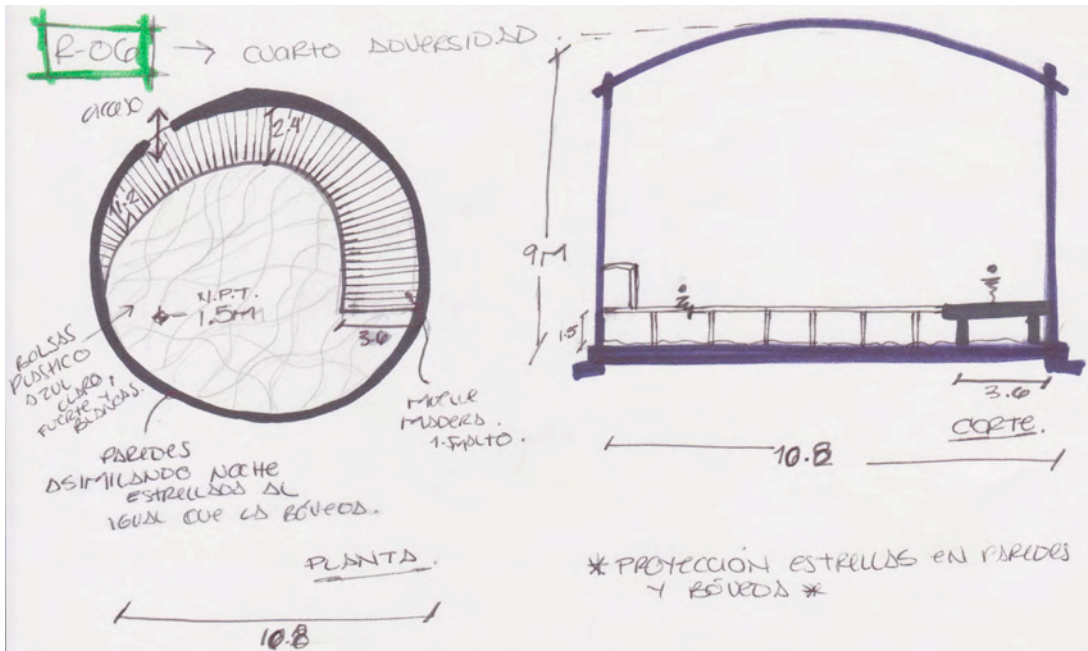 R-06 → CUARTO ADVERSIDAD.
acceso
2.4
1.2
N.P.T.
1.5M
3.6
BOLSAS
PLASTICO
AZUL
CLARO,
FUERTE Y
BLANCAS.
MUELLE
MADERA.
1.5 ALTO.
PAREDES
ASIMILANDO NOCHE
ESTRELLADA AL
IGUAL QUE LA BÓVEDA.
PLANTA.
10.8
9M
1.5
3.6
CORTE.
10.8
* PROYECCIÓN ESTRELLAS EN PAREDES
Y BÓVEDA *